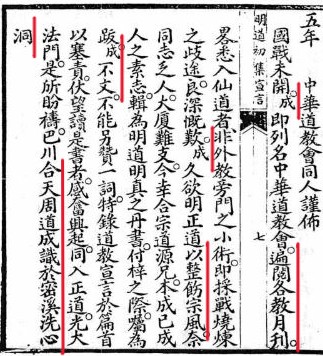 五年　中華道教會同人謹佈
國戰未開成即列名中華道教會。遍閱各教月刊。
明道初集宣言　七
畧悉入仙道者。非外教旁門之小術。即採戰燒煉
之歧途。良深慨歎。成久欲明正道。以整飭宗風。奈
同志乏人。大厦難支。今幸合宗道源兄。本成已成
人之素志。輯為明道明真之丹書。付梓之際。囑為
跋。成不文。不能另贊一詞。特錄道教宣言於篇首
以塞責。伏望讀是書者。感奮興起。同入正道。光大
法門。是所盼禱。巴川合天周道成識於密溪洗心
洞